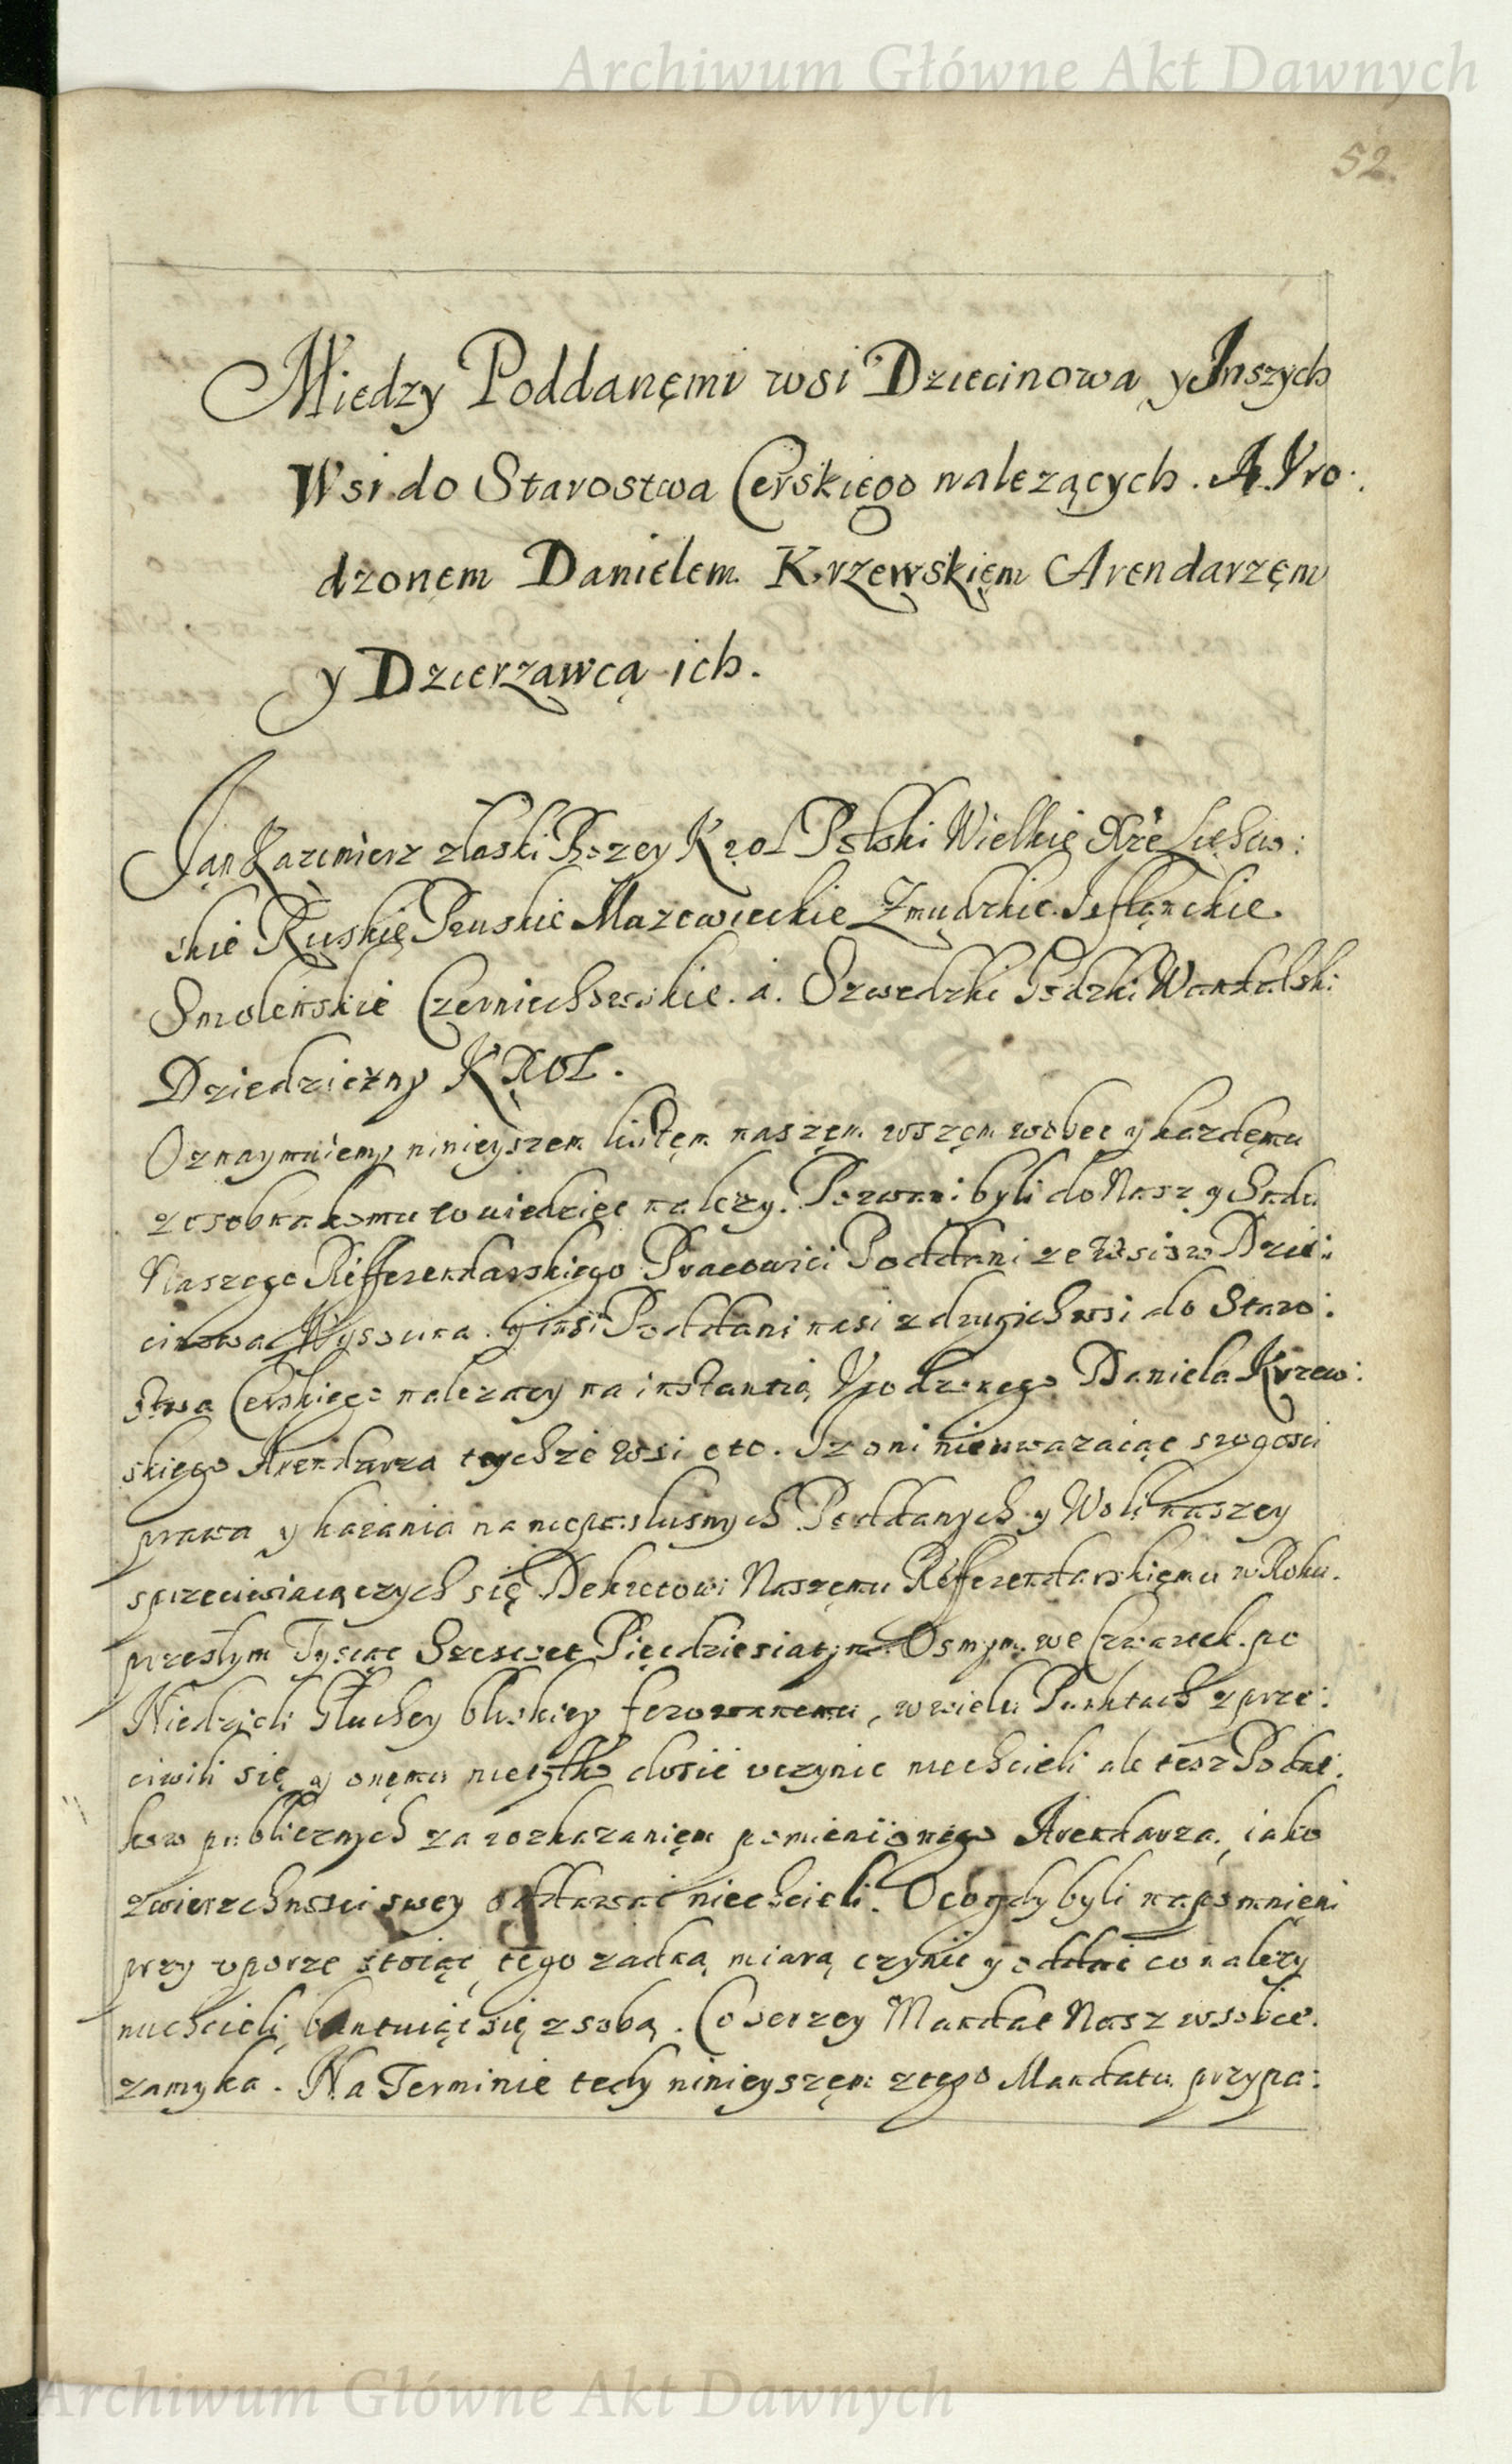 Archiwum Główne Akt Dawnych
52.
Miedzy Poddanęmi wsi Dziecinowa y Inszych
Wsi do Starostwa Cerskiego nalezących. A Vro:
dzonem Danielem Krzewskięm Arendarzęm
y Dzierzawcą ich.
Jan Kazimierz z łaski Bozey Krol Polski Wielkie Xże Litew:
skie Ruskie Pruskie Mazowieckie Zmudzkie Inflanckie
Smolenskie Czerniechowskie. a. Szwedzki Godzki Wandalski
Dziedziczny KROL.
Oznaymuiemy ninieyszem listęm naszęm wszęm wobec y kazdęmu
zosobna komu to wiedziec nalezy. Pozwani byli do Nas y Sądu
Naszego Refferendarskiego Pracowici Poddani ze Wsiow Dzie:
cinowa Wysoczna y insi Poddani nasi z drugich wsi do Staro:
stwa Cerskiego nalezacy na instantią Vrodzonego Daniela Krzew:
skiego Arendarza tychze wsi oto. Iz oni nieuwazaiąc srogosci
prawa y karania na nieposlusnych Poddanych y Woli naszey
sprzeciwiaiączych się Dekretowi Naszemu Refferendarskięmu w Roku
przeszłym Tysiąc Szescset Pięcdziesiatym Osmym we Czwartek po
Niedzieli Głuchey bliskiey ferowanemu, w wielu Punktach zprze:
ciwili się y onęmu nietylko dosic uczynic niechcieli ale tesz Podat:
kow publicznych za rozkazanięm pomienionego Arendarza, iako
zwierzchnosci swey oddawac niechcieli. Oco gdy byli napomnieni
przy uporze stoiąc tego zadną miarą czynic y oddac co nalezy
niechcieli, buntuiąc się z sobą. Co szerzey Mandat Nasz w sobie
zamyka. Na Terminie tedy ninieyszęm z tego Mandatu przypa:
Archiwum Główne Akt Dawnych